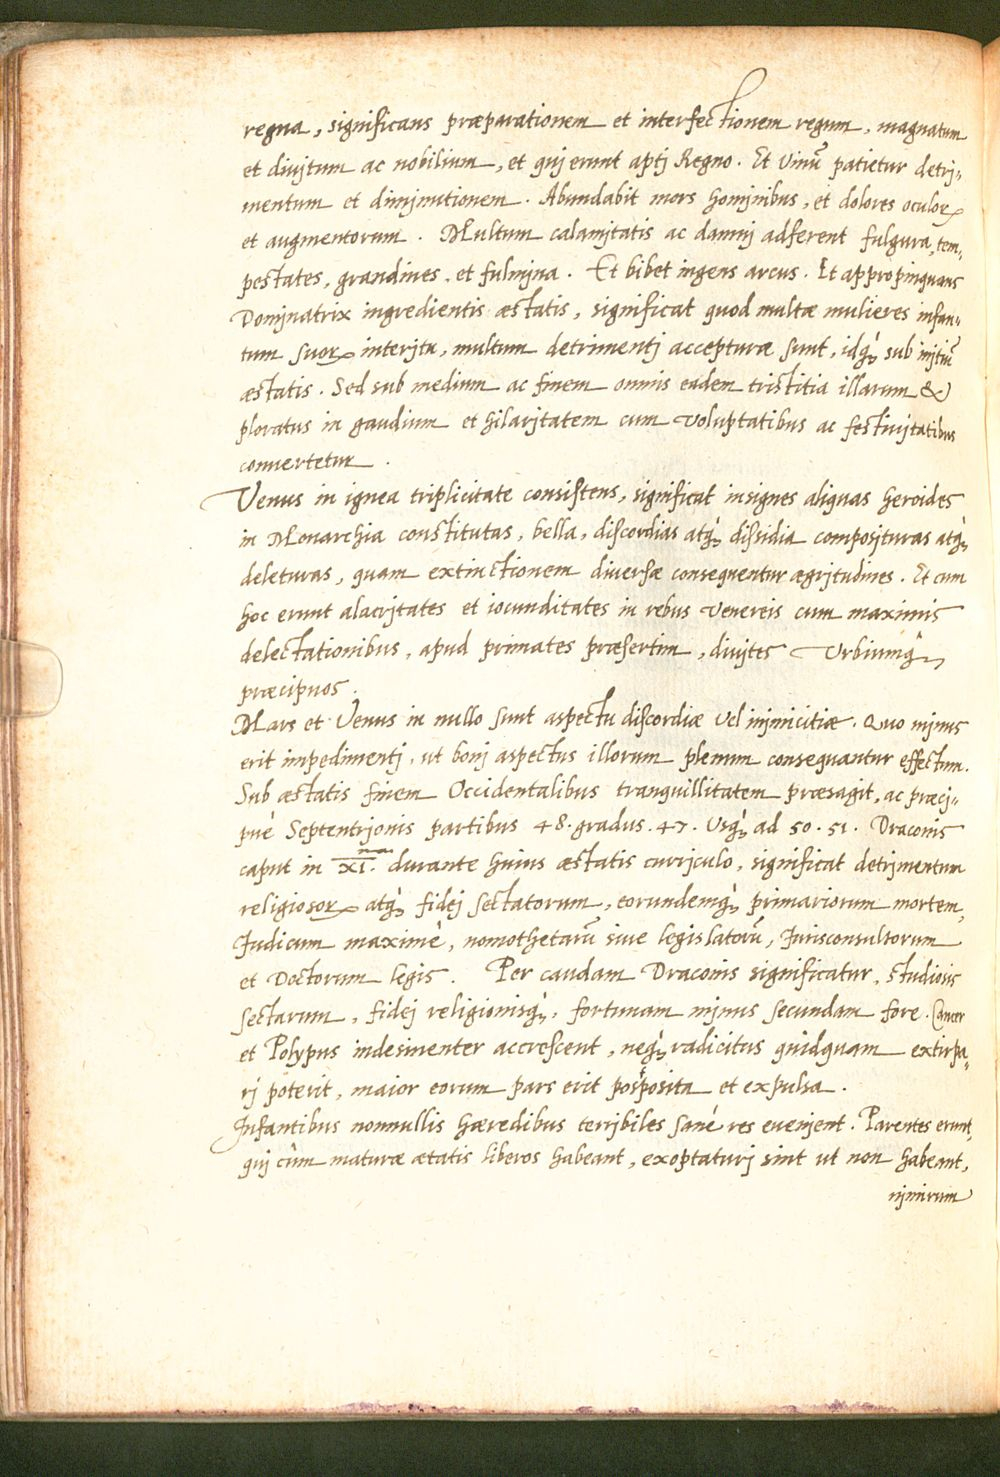 regna, significans præparationem et interfectionem regum, magnatum
et divitum ac nobilium, et qui erunt aptj Regno. Et vinū patietur detrj-
mentum et diminutionem. Abundabit mors hominibus, et dolores oculorꝝ
et augmentorum. Multum calamitatis ac damnj adferent fulgura, tem-
pestates, grandines, et fulmina. Et bibet ingens arcus. Et appropinquans
Dominatrix ingredientis æstatis, significat quod multæ mulieres infan-
tum suorꝝ interitu, multum detrimentj accepturæ sunt, idq̀ꝫ sub initiū
æstatis. Sed sub medium ac finem omnis eadem tristitia illarum &
ploratus in gaudium et hilaritatem cum voluptatibus ac festivitatibus
convertetur.
Venus in ignea triplicitate consistens, significat insignes aliquas heroides
in Monarchia constitutas, bella, discordias atq̀ꝫ dissidia composituras atq̀ꝫ
deleturas, quam extinctionem diversæ consequentur ægritudines. Et cum
hoc erunt alacritates et iocunditates in rebus Venereis cum maximis
delectationibus, apud primates præsertim, divites Urbiumq̀ꝫ
præcipuos.
Mars et Venus in nullo sunt aspectu discordiæ vel inimicitiæ. Quo minus
erit impedimentj, ut bonj aspectus illorum plenum consequantur effectum.
Sub æstatis finem Occidentalibus tranquillitatem præsagit, ac præcj-
puè Septentrionis partibus 48. gradus. 47. Usq̀ꝫ ad 50. 51. Draconis
caput in XI.ma durante huius æstatis curriculo, significat detrimentum
religiosorꝝ atq̀ꝫ fidej sectatorum, eorundemq̀ꝫ primariorum mortem,
Iudicum maximè, nomothetarū siue legislatorū, Iurisconsultorum
et Doctorum legis. Per caudam Draconis significatur, studiosis
sectarum, fidej religionisq̀ꝫ, fortunam minus secundam fore. Cancer
et Polypus indesinenter accrescent, neq̀ꝫ radicitus quidquam extirpa-
rj poterit, maior eorum pars erit posposita et expulsa.
Infantibus nonnullis hæredibus terribiles sanè res evenient. Parentes erunt,
qui cùm maturæ ætatis liberos habeant, exoptaturj sint ut non habeant,
nimirum